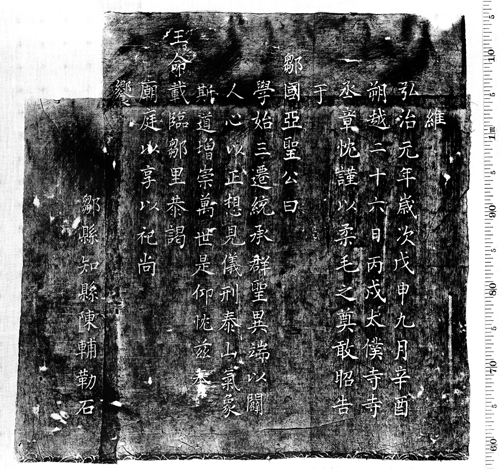 維
弘治元年歲次戊申九月辛酉
朔越二十六日丙戌太僕寺寺
丞章忱謹以柔毛之奠敢昭告
于
鄒國亞聖公曰
學始三遷統承群聖異端以闢
人心以正想見儀刑泰山氣象
斯道增崇萬世是仰忱茲奉
王命載臨鄒里恭謁
廟庭以享以祀尚
饗
鄒縣知縣陳輔勒石